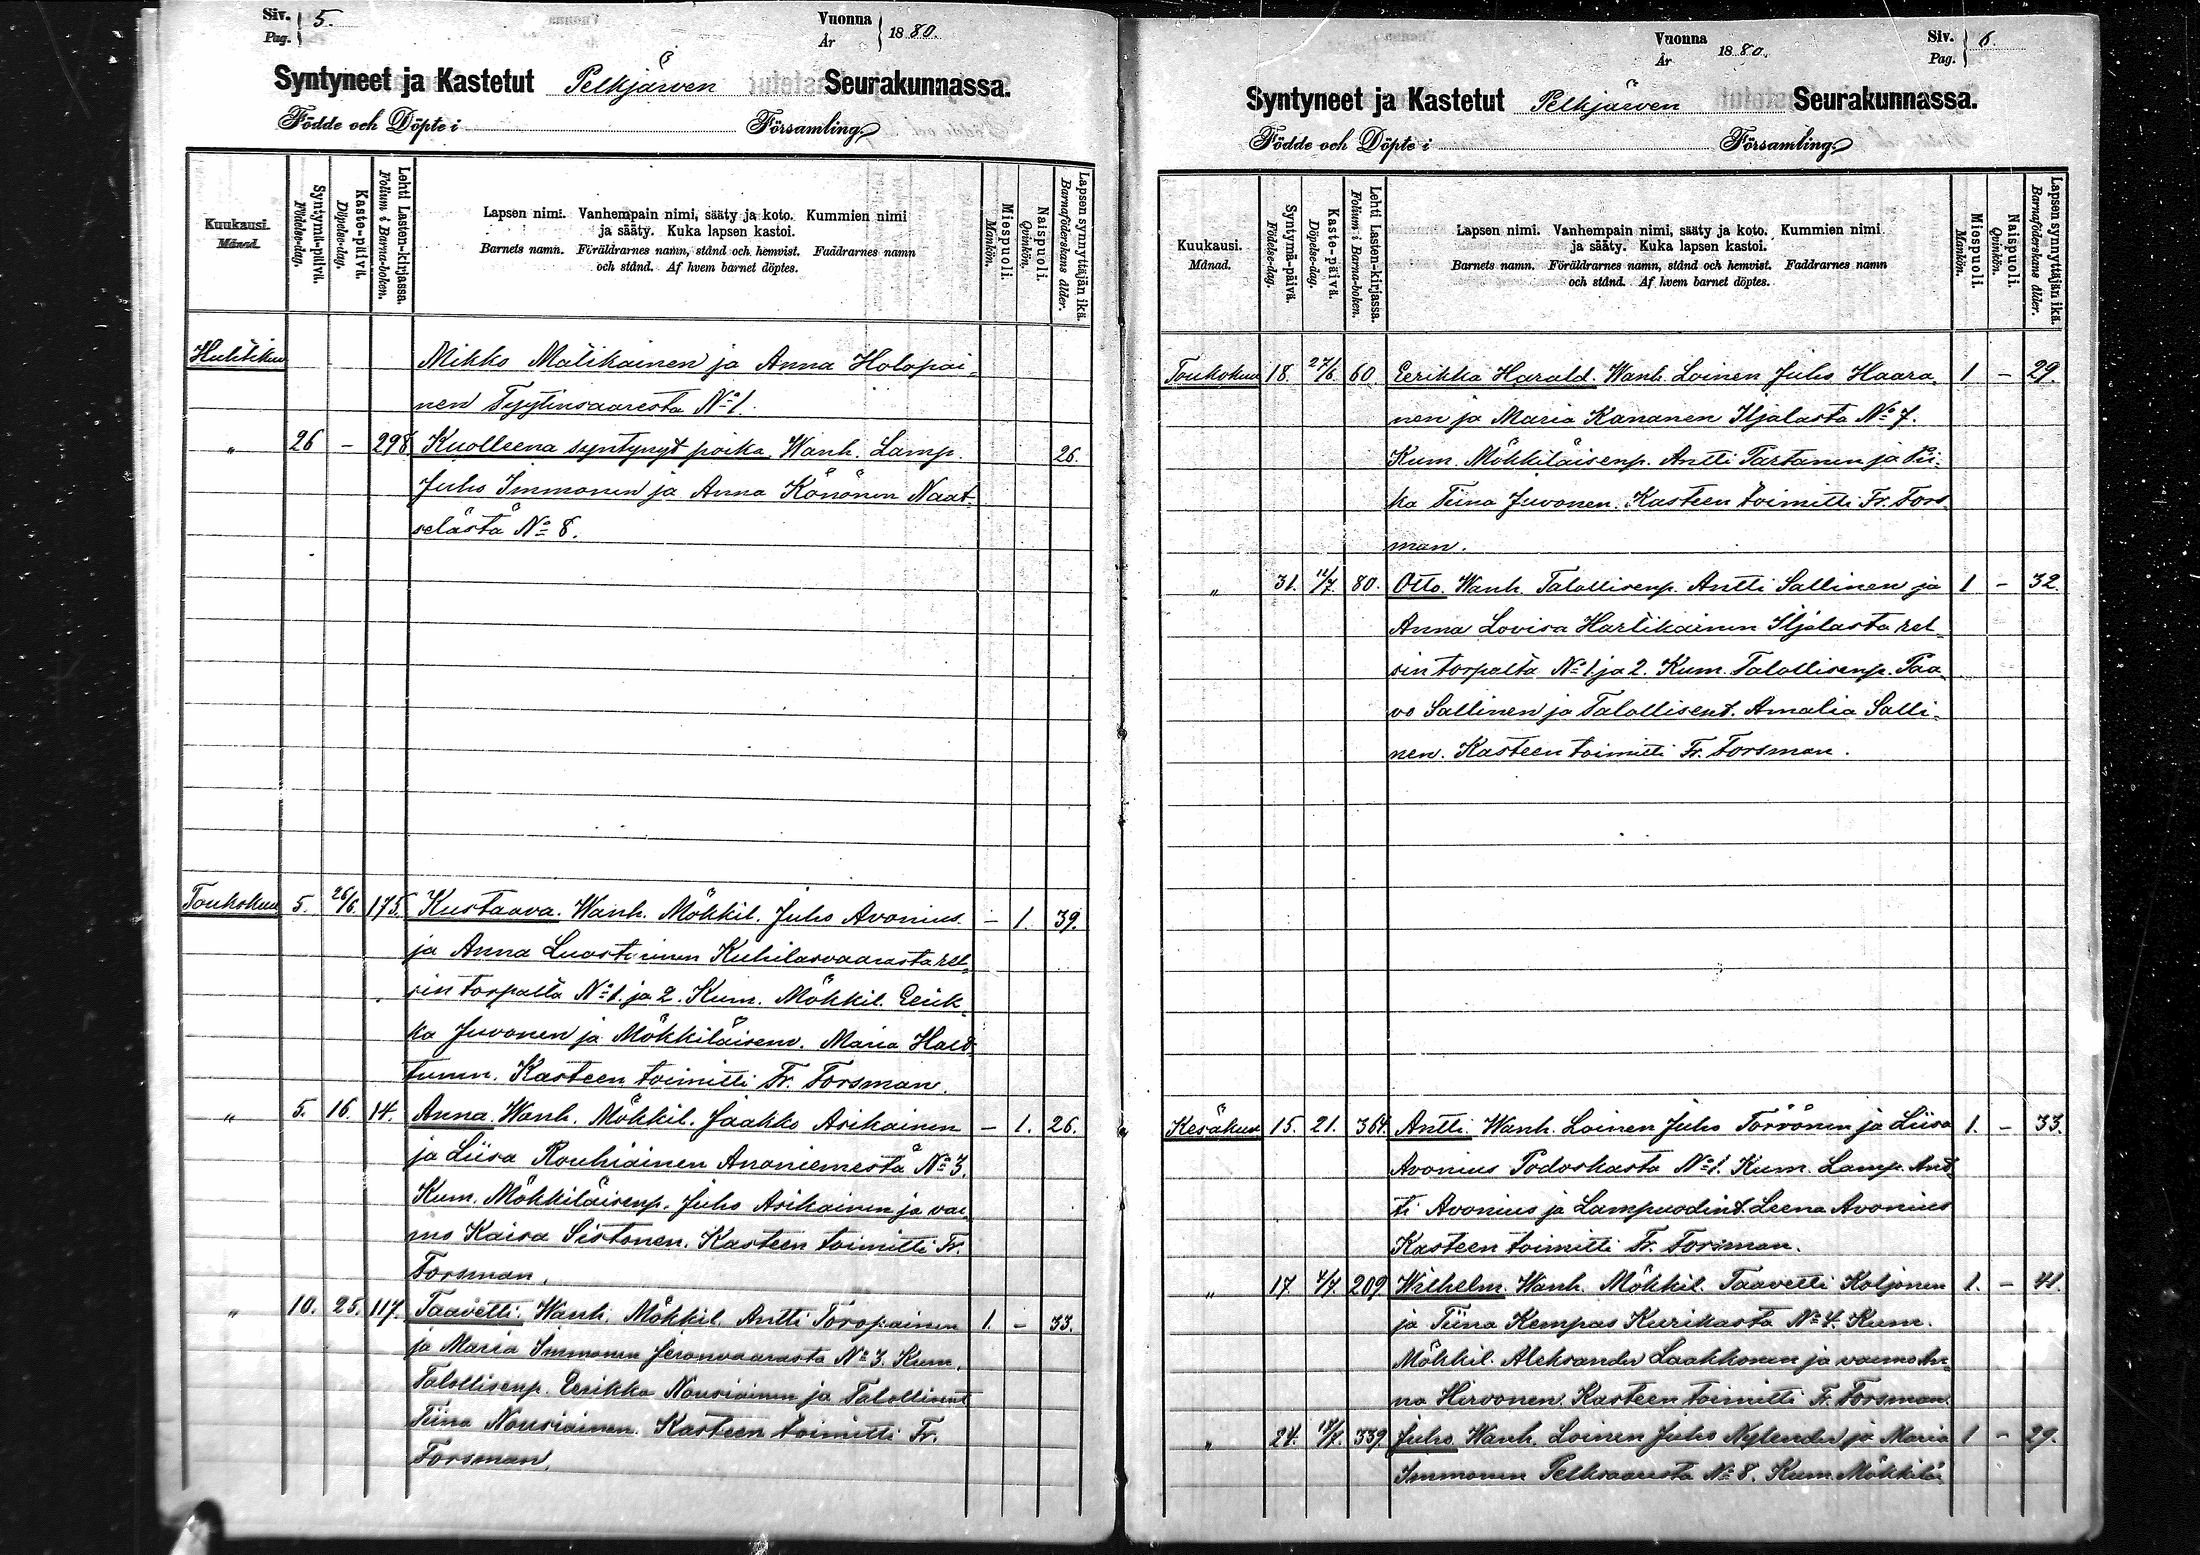 Siv. 5.
Pag.
Vuonna 1880.
År
Syntyneet ja Kastetut Pelkjärven Seurakunnassa.
Födde och Döpte i Församling.
Kuukausi.
Månad.
Syntymä-päivä.
Födelse-dag.
Kaste-päivä.
Döpelse-dag.
Lehti Lasten-kirjassa.
Folium i Barna-boken.
Lapsen nimi. Vanhempain nimi, sääty ja koto. Kummien nimi
ja sääty. Kuka lapsen kastoi.
Barnets namn. Föräldrarnes namn, stånd och hemvist. Faddrarnes namn
och stånd. Af hvem barnet döptes.
Miespuoli.
Mankön.
Naispuoli.
Qvinkön.
Lapsen synnyttäjän ikä.
Barnaföderskans ålder.
Huhtikuu Mikko Matikainen ja Anna Holopai-
nen Tyytinsaaresta No 1.
" 26 - 298 Kuolleena syntynyt poika. Wanh. Lamp. 26.
Juho Immonen ja Anna Könönen Naat-
selästä No 8.
Toukokuu 5. 26/6. 175. Kustaava. Wanh. Mökkil. Juho Avonius - 1. 39.
ja Anna Luostarinen Kuhilasvaarasta rel-
sin torpalta No 1. ja 2. Kum. Mökkil. Eerik-
ka Juvonen ja Mökkiläisenv. Maria Hald-
tunen. Kasteen toimitti Fr. Forsman.
" 5. 16. 14. Anna. Wanh. Mökkil. Jaakko Asikainen - 1. 26.
ja Liisa Rouhiainen Anoniemestä No 3.
Kum. Mökkiläisenp. Juho Asikainen ja vai-
mo Kaisa Sistonen. Kasteen toimitti Fr.
Forsman.
" 10. 25. 117. Taavetti. Wanh. Mökkil. Antti Toropainen 1. - 33.
ja Maria Immonen Jeronvaarasta No 3. Kum.
Talollisenp. Eerikka Nousiainen ja Talollisent.
Tiina Nousiainen. Kasteen toimitti Fr.
Forsman.
Vuonna 1880.
År
Siv. 6.
Pag.
Syntyneet ja Kastetut Pelkjärven Seurakunnassa.
Födde och Döpte i Församling.
Kuukausi.
Månad.
Syntymä-päivä.
Födelse-dag.
Kaste-päivä.
Döpelse-dag.
Lehti Lasten-kirjassa.
Folium i Barna-boken.
Lapsen nimi. Vanhempain nimi, sääty ja koto. Kummien nimi
ja sääty. Kuka lapsen kastoi.
Barnets namn. Föräldrarnes namn, stånd och hemvist. Faddrarnes namn
och stånd. Af hvem barnet döptes.
Miespuoli.
Mankön.
Naispuoli.
Qvinkön.
Lapsen synnyttäjän ikä.
Barnaföderskans ålder.
Toukokuu 18. 27/6. 60. Eerikka Harald. Wanh. Loinen Juho Haara- 1 - 29.
nen ja Maria Kananen Iljalasta No 7.
Kum. Mökkiläisenp. Antti Tartanen ja Pii-
ka Tiina Juvonen. Kasteen toimitti Fr. Fors-
man.
" 31. 11/7. 80. Otto. Wanh. Talollisenp. Antti Sallinen ja 1 - 32.
Anna Lovisa Hartikainen Iljalasta rel-
sin torpalta No 1. ja 2. Kum. Talollisenp. Paa-
vo Sallinen ja Talollisent. Amalia Salli-
nen. Kasteen toimitti Fr. Forsman.
Kesäkuu 15. 21. 364. Antti. Wanh. Loinen Juho Törvönen ja Liisa 1. - 33.
Avonius Podoskasta No 1. Kum. Lamp. Ant-
ti Avonius ja Lampuodint. Leena Avonius
Kasteen toimitti Fr. Forsman.
" 17. 4/7. 209 Wilhelm. Wanh. Mökkil. Taavetti Koljonen 1. - 41.
ja Tiina Kempas Kurikasta No 4. Kum.
Mökkil. Aleksander Laakkonen ja vaimo An-
na Hirvonen. Kasteen toimitti Fr. Forsman.
" 24. 18/7. 339 Juho. Wanh. Loinen Juho Nylender ja Maria 1 - 29.
Immonen Pelksaaresta No 8. Kum. Mökkilä-